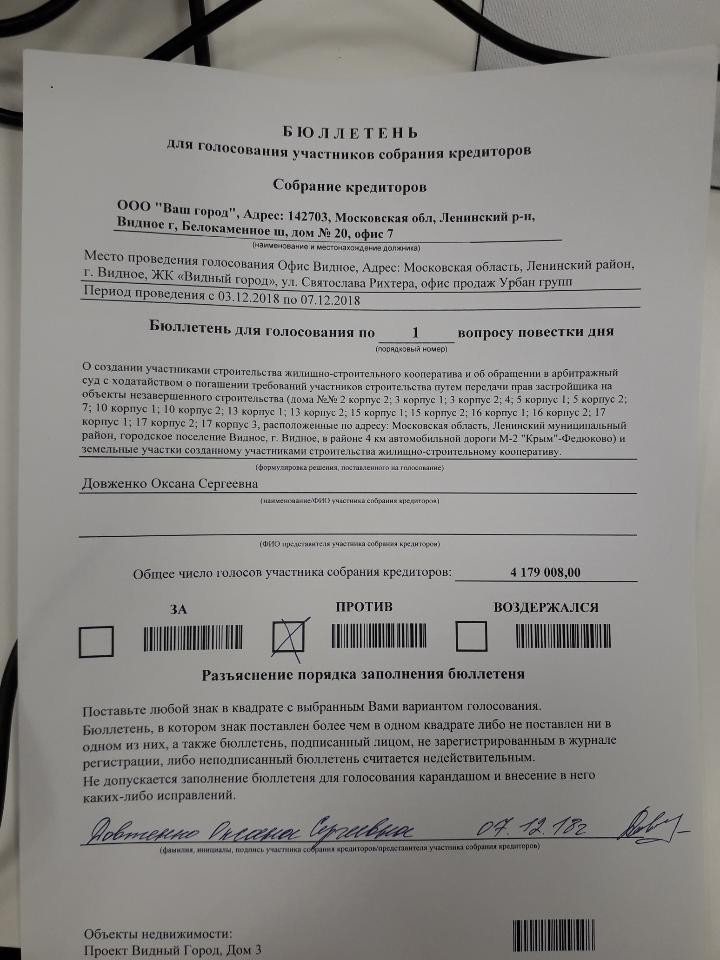 БЮЛЛЕТЕНЬ
для голосования участников собрания кредиторов
Собрание кредиторов
ООО "Ваш город", Адрес: 142703, Московская обл, Ленинский р-н,
Видное г, Белокаменное ш, дом № 20, офис 7
(наименование и местонахождение должника)
Место проведения голосования Офис Видное, Адрес: Московская область, Ленинский район,
г. Видное, ЖК «Видный город», ул. Святослава Рихтера, офис продаж Урбан групп
Период проведения с 03.12.2018 по 07.12.2018
Бюллетень для голосования по 1 вопросу повестки дня
(порядковый номер)
О создании участниками строительства жилищно-строительного кооператива и об обращении в арбитражный
суд с ходатайством о погашении требований участников строительства путем передачи прав застройщика на
объекты незавершенного строительства (дома №№ 2 корпус 2; 3 корпус 1; 3 корпус 2; 4; 5 корпус 1; 5 корпус 2;
7; 10 корпус 1; 10 корпус 2; 13 корпус 1; 13 корпус 2; 15 корпус 1; 15 корпус 2; 16 корпус 1; 16 корпус 2; 17
корпус 1; 17 корпус 2; 17 корпус 3, расположенные по адресу: Московская область, Ленинский муниципальный
район, городское поселение Видное, г. Видное, в районе 4 км автомобильной дороги М-2 "Крым"-Федюково) и
земельные участки созданному участниками строительства жилищно-строительному кооперативу.
(формулировка решения, поставленного на голосование)
Довженко Оксана Сергеевна
(наименование/ФИО участника собрания кредиторов)
(ФИО представителя участника собрания кредиторов)
Общее число голосов участника собрания кредиторов: 4 179 008,00
ЗА ПРОТИВ ВОЗДЕРЖАЛСЯ
Разъяснение порядка заполнения бюллетеня
Поставьте любой знак в квадрате с выбранным Вами вариантом голосования.
Бюллетень, в котором знак поставлен более чем в одном квадрате либо не поставлен ни в
одном из них, а также бюллетень, подписанный лицом, не зарегистрированным в журнале
регистрации, либо неподписанный бюллетень считается недействительным.
Не допускается заполнение бюллетеня для голосования карандашом и внесение в него
каких-либо исправлений.
Довженко Оксана Сергеевна 07.12.18г
(фамилия, инициалы, подпись участника собрания кредиторов/представителя участника собрания кредиторов)
Объекты недвижимости:
Проект Видный Город, Дом 3